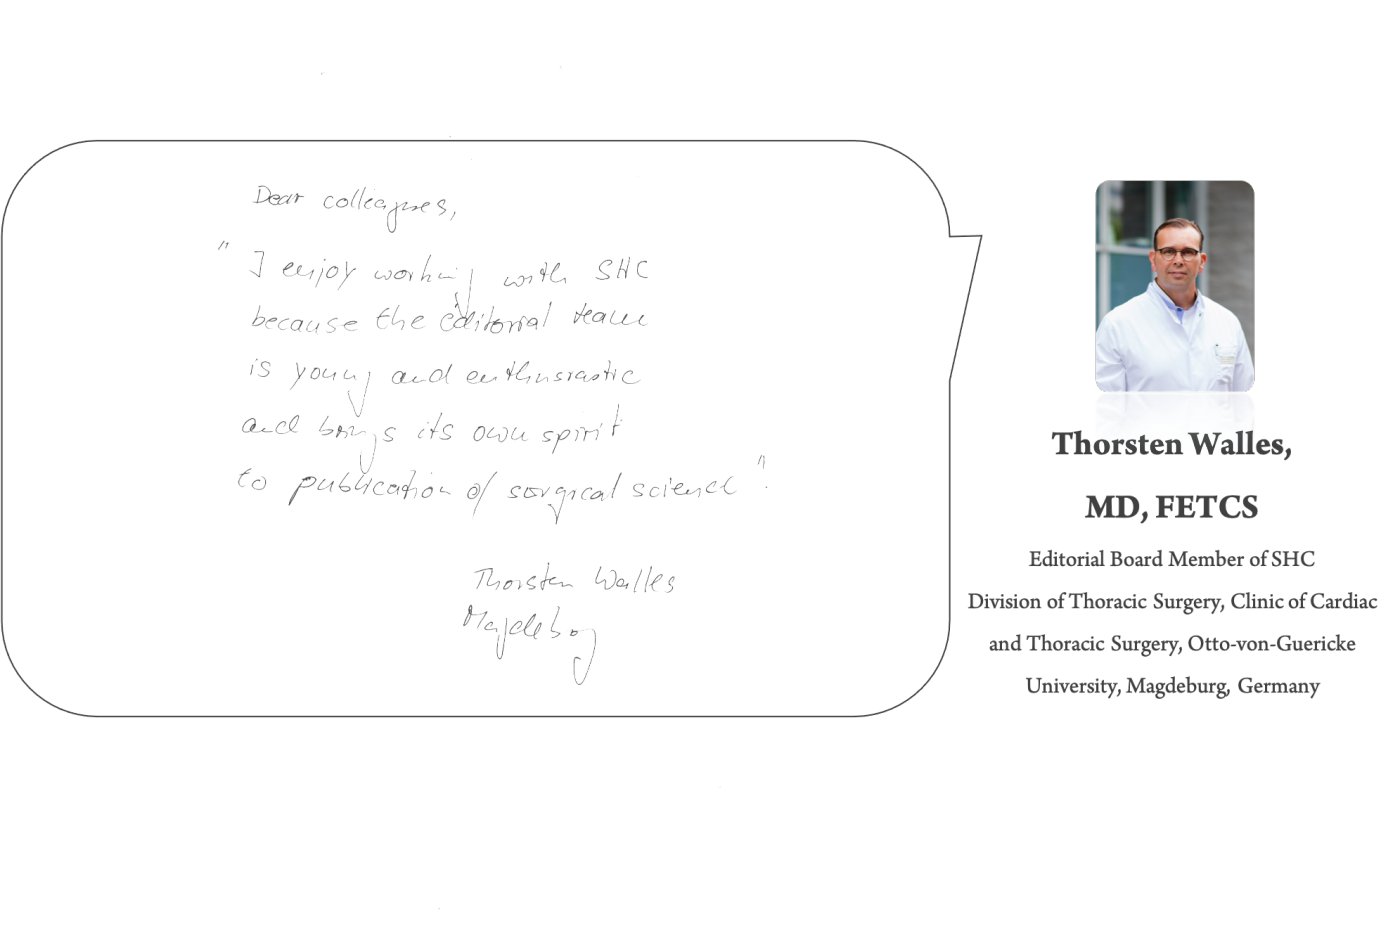 Dear colleagues,
" I enjoy working with SHC
because the editorial team
is young and enthusiastic
and brings its own spirit
to publication of surgical science".
Thorsten Walles
Magdeburg
Thorsten Walles,
MD, FETCS
Editorial Board Member of SHC
Division of Thoracic Surgery, Clinic of Cardiac
and Thoracic Surgery, Otto-von-Guericke
University, Magdeburg, Germany